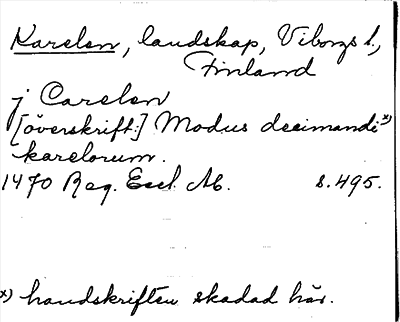 Karelen, landskap, Viborgs l.,
Finland
j Carelen
[överskrift:] Modus decimandi x)
karelorum.
1470 Reg. Eccl. Ab. s. 495.
x) handskriften skadad här.